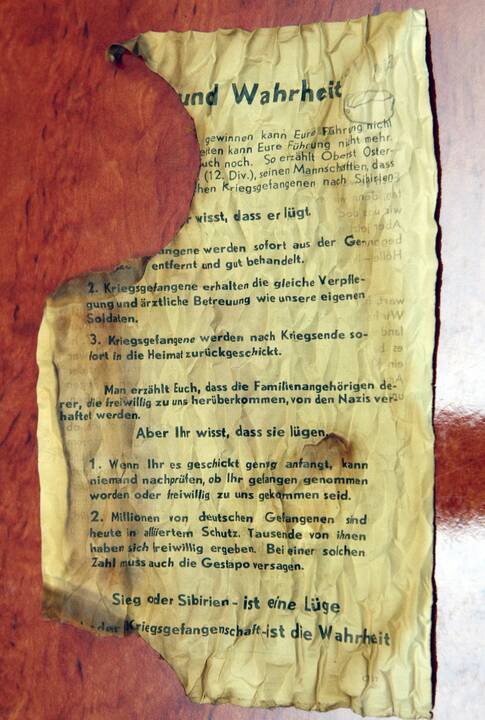 und Wahrheit
gewinnen kann Eure Führung nicht
kann Eure Führung nicht mehr.
noch. So erzählt Oberst Oster-
(12. Div.), seinen Mannschaften, dass
Kriegsgefangenen nach Sibirien
wisst, dass er lügt.
werden sofort aus der Ge-
entfernt und gut behandelt.
2. Kriegsgefangene erhalten die gleiche Verpfle-
gung und ärztliche Betreuung wie unsere eigenen
Soldaten.
3. Kriegsgefangene werden nach Kriegsende so-
fort in die Heimat zurückgeschickt.
Man erzählt Euch, dass die Familienangehörigen de-
rer, die freiwillig zu uns herüberkommen, von den Nazis ver-
haftet werden.
Aber Ihr wisst, dass sie lügen.
1. Wenn Ihr es geschickt genug anfangt, kann
niemand nachprüfen, ob Ihr gefangen genommen
worden oder freiwillig zu uns gekommen seid.
2. Millionen von deutschen Gefangenen sind
heute in alliiertem Schutz. Tausende von ihnen
haben sich freiwillig ergeben. Bei einer solchen
Zahl muss auch die Gestapo versagen.
Sieg oder Sibirien - ist eine Lüge
oder Kriegsgefangenschaft - ist die Wahrheit